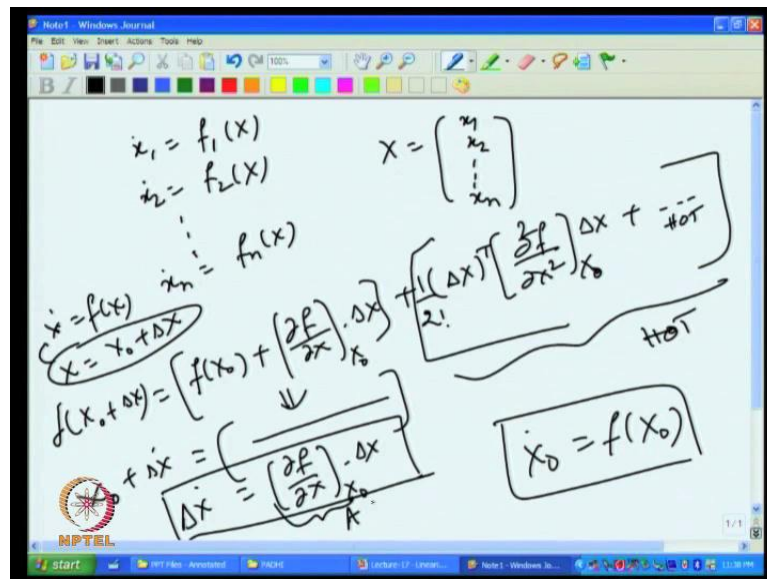 Note1 - Windows Journal
File Edit View Insert Actions Tools Help
100%
B I
ẋ₁ = f₁(X)
ẋ₂ = f₂(X)
⋮
ẋₙ = fₙ(X)
X = (x₁ x₂ ⋮ xₙ)
Ẋ = f(X)
X = X₀ + ΔX
f(X₀ + ΔX) = [f(X₀) + (∂f/∂X)_X₀ · ΔX] + [1/2! (ΔX)ᵀ [∂²f/∂X²]_X₀ ΔX + --- HOT]
HOT
⇓
Ẋ₀ + ΔẊ = [ ]
ΔẊ = (∂f/∂X)_X₀ · ΔX
A
Ẋ₀ = f(X₀)
NPTEL
1/1
start
PPT Files - Annotated
PADHI
Lecture-17 - Lineari...
Note1 - Windows Jo...
11:38 PM